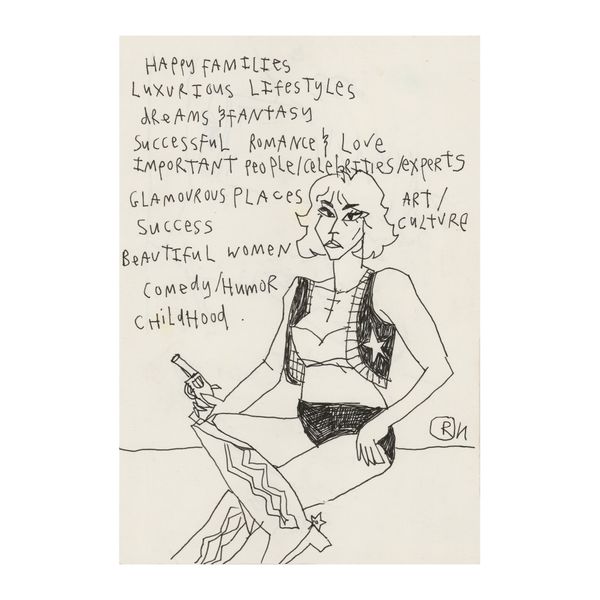 HAPPY FAMILIES
LUXURIOUS LIFESTYLES
DREAMS & FANTASY
SUCCESSFUL ROMANCE & LOVE
IMPORTANT PEOPLE/CELEBRITIES/EXPERTS
GLAMOUROUS PLACES
ART/
CULTURE
SUCCESS
BEAUTIFUL WOMEN
COMEDY/HUMOR
CHILDHOOD.